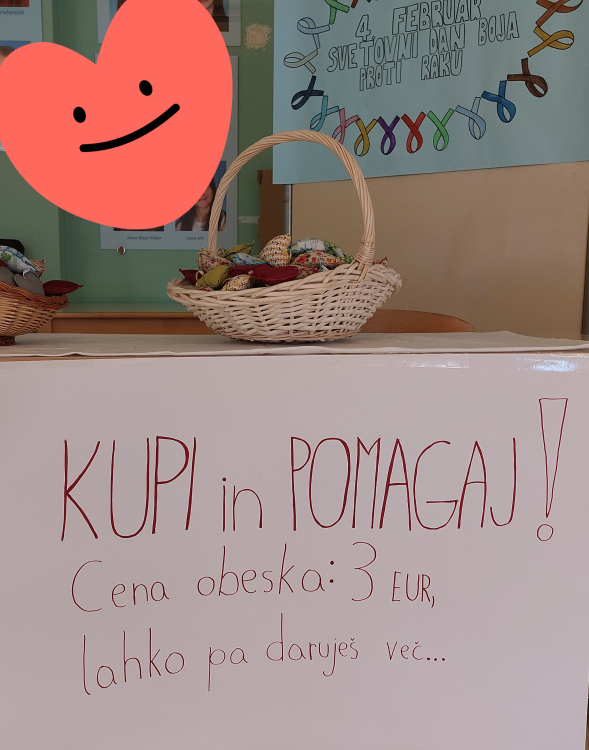 4. FEBRUAR
SVETOVNI DAN BOJA
PROTI RAKU
KUPI in POMAGAJ!
Cena obeska: 3 EUR,
lahko pa daruješ več...